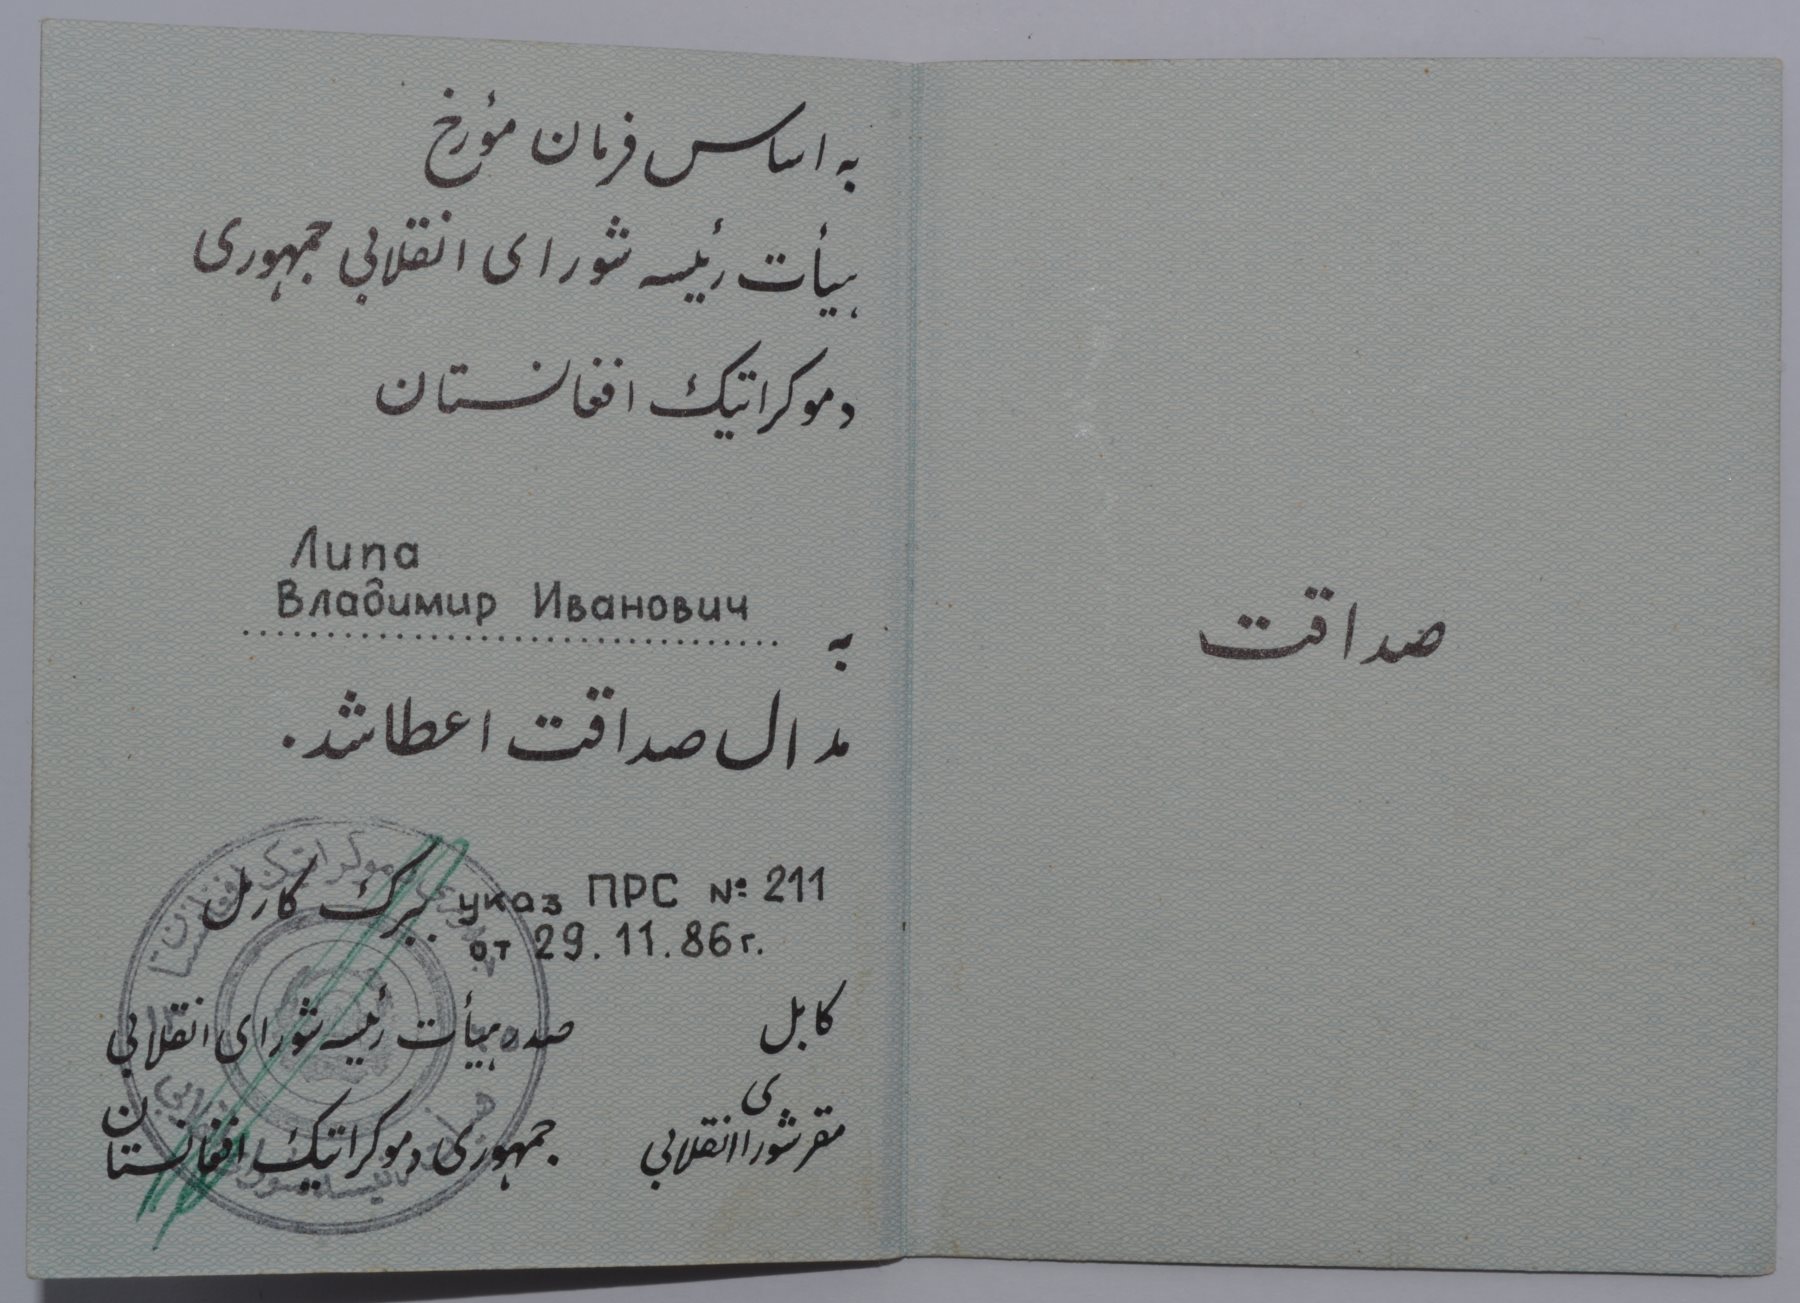 به اساس فرمان مؤرخ
هیأت رئیسه شورای انقلابی جمهوری
دموکراتیک افغانستان
Липа
Владимир Иванович
به
مدال صداقت اعطا شد.
ببرک کارمل
указ ПРС №: 211
от 29.11.86 г.
صدر هیأت رئیسه شورای انقلابی
جمهوری دموکراتیک افغانستان
کابل
مقر شورای انقلابی
صداقت